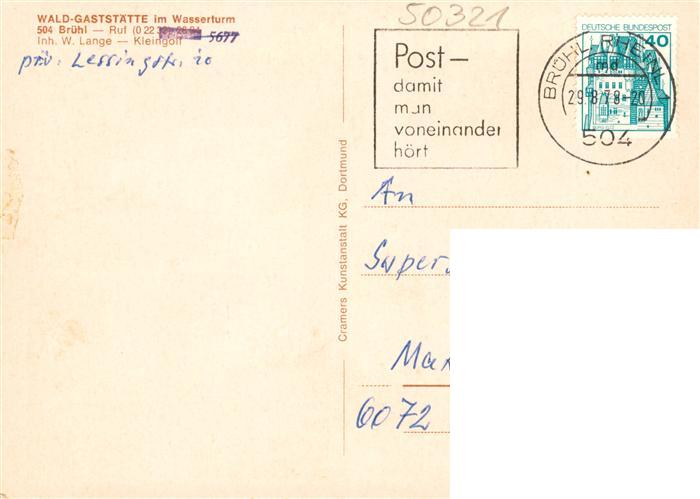 WALD-GASTSTÄTTE im Wasserturm
504 Brühl — Ruf (0 22 32) 5677
Inh. W. Lange — Kleingolf
priv. Lessingstr. 20
50321
Post—
damit
man
voneinander
hört
DEUTSCHE BUNDESPOST
40
BRÜHL, RHEINL
md
29.8.78-20
504
An
Super
Max
6072
Cramers Kunstanstalt KG, Dortmund